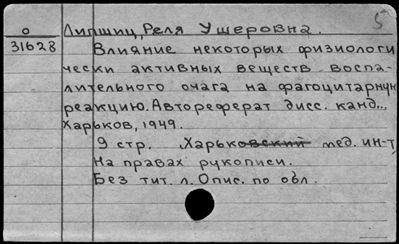 5
О Липшиц, Реля Ушеровна.
31628 Влияние некоторых физиологи
чески активных веществ воспа-
лительного очага на фагоцитарную
реакцию. Автореферат дисс. канд...
Харьков, 1949.
9 стр. Харьковский мед. ин-т
На правах рукописи.
Без тит. л. Опис. по обл.